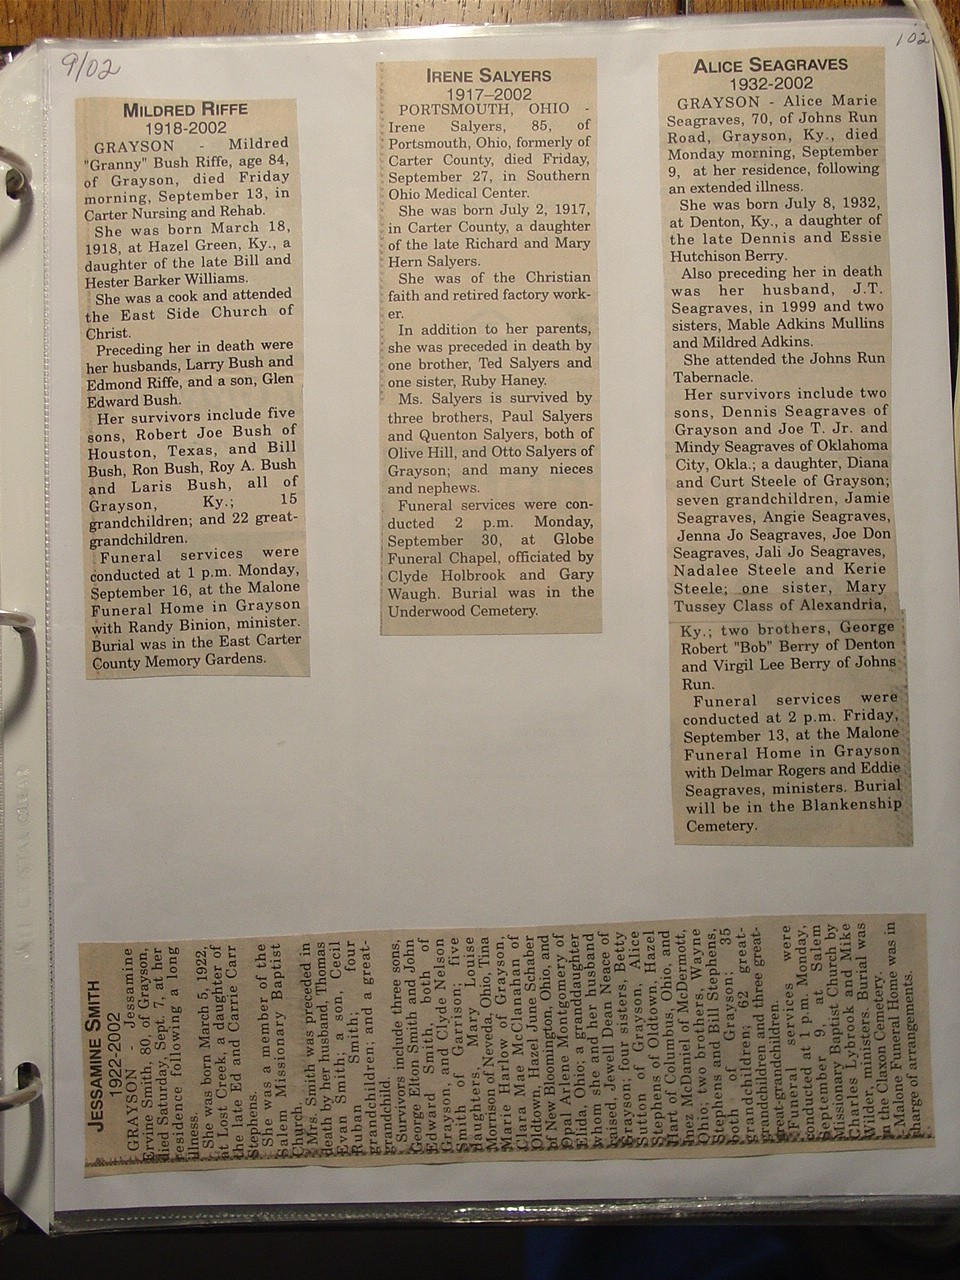 9/02
102
MILDRED RIFFE
1918-2002
GRAYSON - Mildred
"Granny" Bush Riffe, age 84,
of Grayson, died Friday
morning, September 13, in
Carter Nursing and Rehab.
She was born March 18,
1918, at Hazel Green, Ky., a
daughter of the late Bill and
Hester Barker Williams.
She was a cook and attended
the East Side Church of
Christ.
Preceding her in death were
her husbands, Larry Bush and
Edmond Riffe, and a son, Glen
Edward Bush.
Her survivors include five
sons, Robert Joe Bush of
Houston, Texas, and Bill
Bush, Ron Bush, Roy A. Bush
and Laris Bush, all of
Grayson, Ky.; 15
grandchildren; and 22 great-
grandchildren.
Funeral services were
conducted at 1 p.m. Monday,
September 16, at the Malone
Funeral Home in Grayson
with Randy Binion, minister.
Burial was in the East Carter
County Memory Gardens.
IRENE SALYERS
1917–2002
PORTSMOUTH, OHIO -
Irene Salyers, 85, of
Portsmouth, Ohio, formerly of
Carter County, died Friday,
September 27, in Southern
Ohio Medical Center.
She was born July 2, 1917,
in Carter County, a daughter
of the late Richard and Mary
Hern Salyers.
She was of the Christian
faith and retired factory work-
er.
In addition to her parents,
she was preceded in death by
one brother, Ted Salyers and
one sister, Ruby Haney.
Ms. Salyers is survived by
three brothers, Paul Salyers
and Quenton Salyers, both of
Olive Hill, and Otto Salyers of
Grayson; and many nieces
and nephews.
Funeral services were con-
ducted 2 p.m. Monday,
September 30, at Globe
Funeral Chapel, officiated by
Clyde Holbrook and Gary
Waugh. Burial was in the
Underwood Cemetery.
ALICE SEAGRAVES
1932-2002
GRAYSON - Alice Marie
Seagraves, 70, of Johns Run
Road, Grayson, Ky., died
Monday morning, September
9, at her residence, following
an extended illness.
She was born July 8, 1932,
at Denton, Ky., a daughter of
the late Dennis and Essie
Hutchison Berry.
Also preceding her in death
was her husband, J.T.
Seagraves, in 1999 and two
sisters, Mable Adkins Mullins
and Mildred Adkins.
She attended the Johns Run
Tabernacle.
Her survivors include two
sons, Dennis Seagraves of
Grayson and Joe T. Jr. and
Mindy Seagraves of Oklahoma
City, Okla.; a daughter, Diana
and Curt Steele of Grayson;
seven grandchildren, Jamie
Seagraves, Angie Seagraves,
Jenna Jo Seagraves, Joe Don
Seagraves, Jali Jo Seagraves,
Nadalee Steele and Kerie
Steele; one sister, Mary
Tussey Class of Alexandria,
Ky.; two brothers, George
Robert "Bob" Berry of Denton
and Virgil Lee Berry of Johns
Run.
Funeral services were
conducted at 2 p.m. Friday,
September 13, at the Malone
Funeral Home in Grayson
with Delmar Rogers and Eddie
Seagraves, ministers. Burial
will be in the Blankenship
Cemetery.
JESSAMINE SMITH
1922-2002
GRAYSON - Jessamine
Ervine Smith, 80, of Grayson,
died Saturday, Sept. 7, at her
residence following a long
illness.
She was born March 5, 1922,
at Lost Creek, a daughter of
the late Ed and Carrie Carr
Stephens.
She was a member of the
Salem Missionary Baptist
Church.
Mrs. Smith was preceded in
death by her husband, Thomas
Evan Smith; a son, Cecil
Ruban Smith; four
grandchildren; and a great-
grandchild.
Survivors include three sons,
George Elton Smith and John
Edward Smith, both of
Grayson, and Clyde Nelson
Smith of Garrison; five
daughters, Mary Louise
Morrison of Neveda, Ohio, Tina
Marie Harlow of Grayson,
Clara Mae McClanahan of
Oldtown, Hazel June Schaber
of New Bloomington, Ohio, and
Opal Arlene Montgomery of
Elida, Ohio; a granddaughter
whom she and her husband
raised, Jewell Dean Neace of
Grayson; four sisters, Betty
Sutton of Grayson, Alice
Stephens of Oldtown, Hazel
Hart of Columbus, Ohio, and
Inez McDaniel of McDermott,
Ohio; two brothers, Wayne
Stephens and Bill Stephens,
both of Grayson; 35
grandchildren; 62 great-
grandchildren and three great-
great-grandchildren.
Funeral services were
conducted at 1 p.m. Monday,
September 9, at Salem
Missionary Baptist Church by
Charles Lybrook and Mike
Wilder, ministers. Burial was
in the Claxon Cemetery.
Malone Funeral Home was in
charge of arrangements.